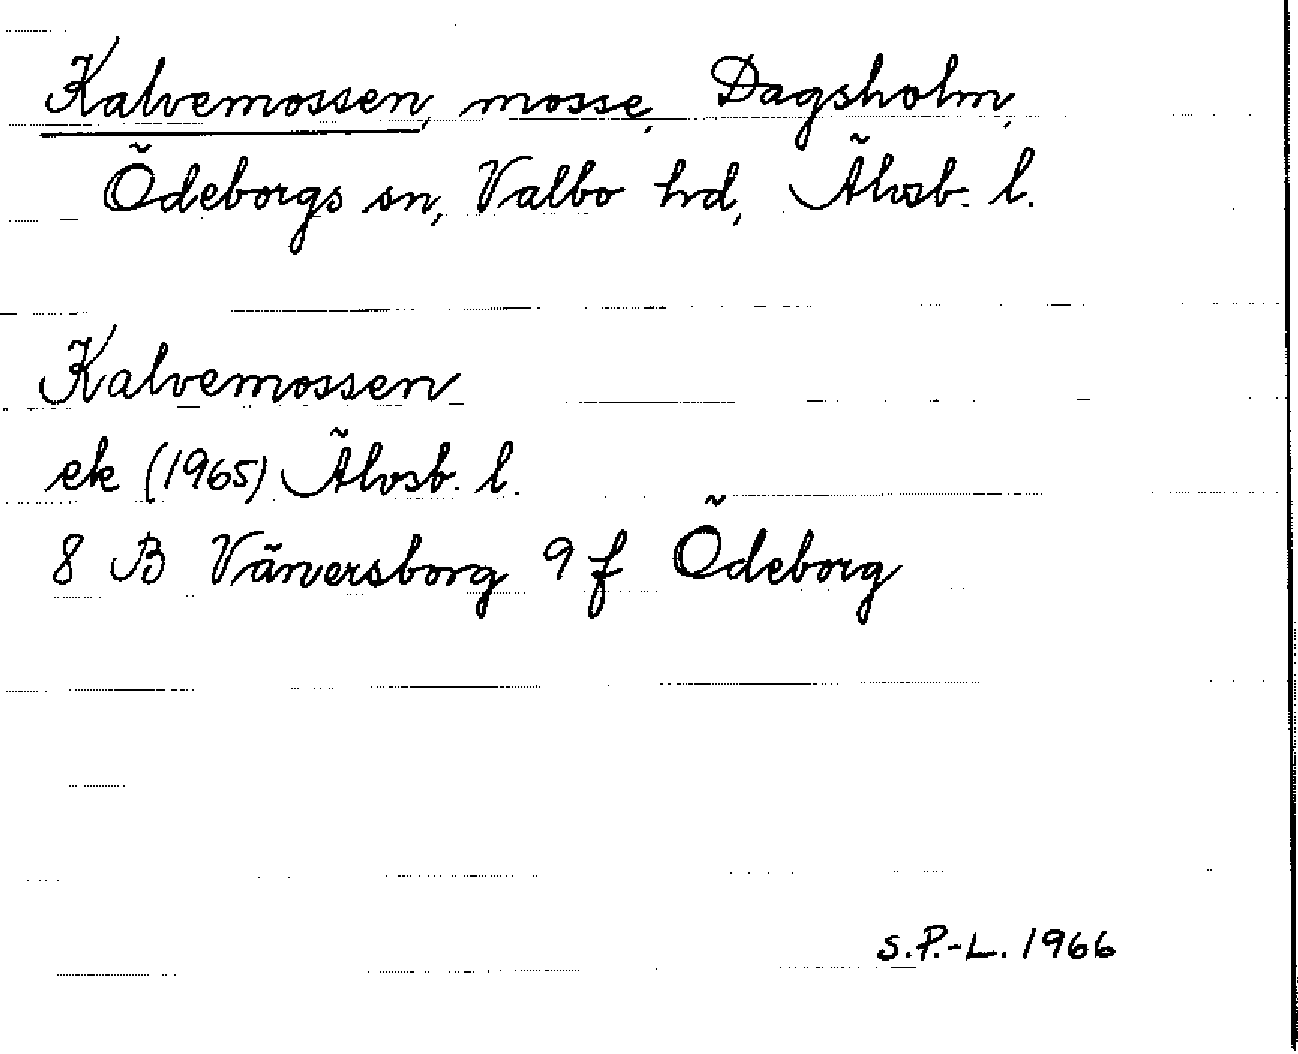 Kalvemossen, mosse, Dagsholm,
Ödeborgs sn, Valbo hd, Älvsb. l.
Kalvemossen
ek (1965) Älvsb. l.
8 B Vänersborg 9 f Ödeborg
S.P.-L. 1966